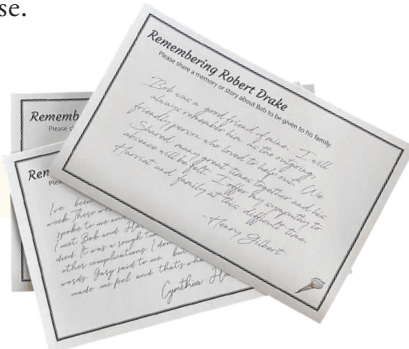 se.
Remembering Robert Drake
Please share a memory or story about Bob to be given to his family.
Bob was a good friend of mine. I will
always remember him as the outgoing,
friendly person who loved to help out. We
shared many great times together and his
absence will be felt. I offer my sympathy to
Harriet and family at this difficult time.
-Henry Gilbert
Rememb
Please s
Rem
Plea
I've been
week. There we
spoke to me
I met Bob and Ha
died. It was a rough t
other complications. I do
words. Gary said to me
made me feel and that's wha
Cynthia H